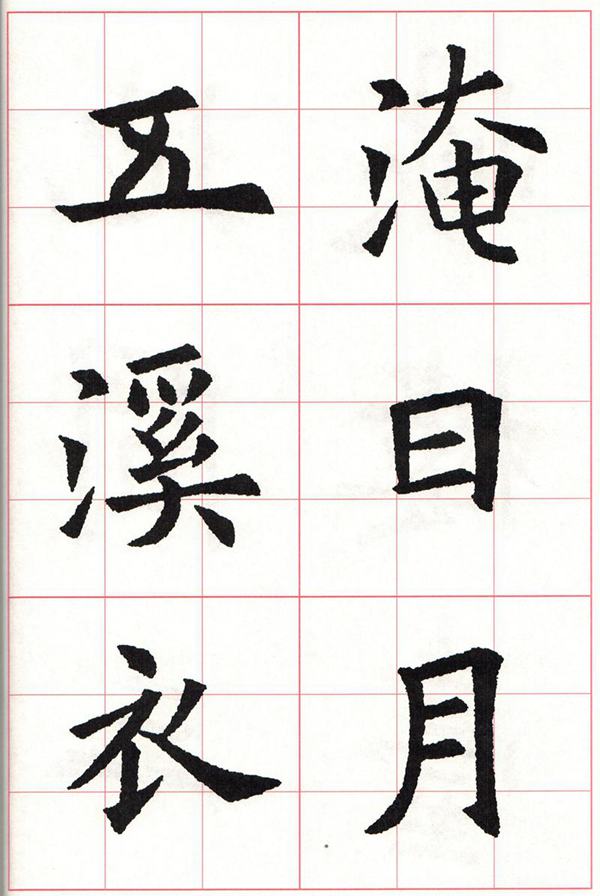 淹日月
五溪衣